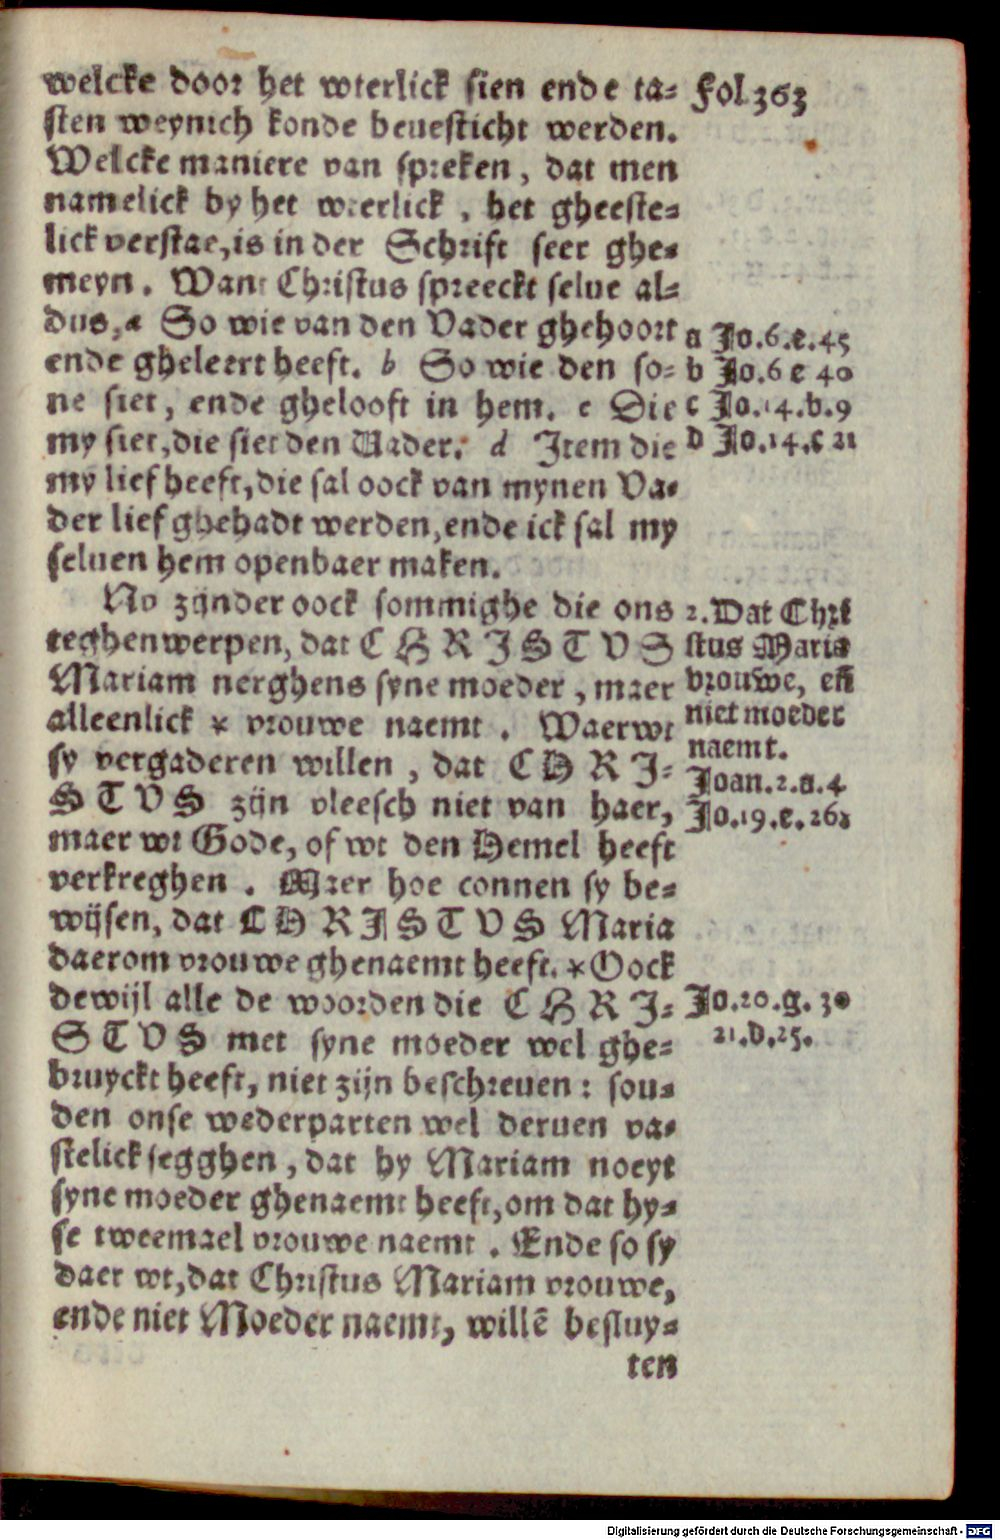 Fol 363
welcke door het wterlick sien ende ta-
sten weynich konde beuesticht werden.
Welcke maniere van spreken, dat men
namelick by het wterlick, het gheeste-
lick verstae, is in der Schrift seer ghe-
meyn. Want Christus spreeckt selue al-
dus, a So wie van den Vader ghehoort
ende gheleert heeft. b So wie den so-
ne siet, ende ghelooft in hem. c Die
my siet, die siet den Vader. d Item die
my lief heeft, die sal oock van mynen Va-
der lief ghehadt werden, ende ick sal my
seluen hem openbaer maken.
Nv zijnder oock sommighe die ons
teghenwerpen, dat CHRISTVS
Mariam nerghens syne moeder, maer
alleenlick * vrouwe naemt. Waerwt
sy vergaderen willen, dat CHRI-
STVS zijn vleesch niet van haer,
maer wt Gode, of wt den Hemel heeft
verkreghen. Maer hoe connen sy be-
wijsen, dat CHRISTVS Maria
daerom vrouwe ghenaemt heeft. * Oock
dewijl alle de woorden die CHRI-
STVS met syne moeder wel ghe-
bruyckt heeft, niet zijn beschreuen: sou-
den onse wederparten wel deruen va-
stelick segghen, dat hy Mariam noeyt
syne moeder ghenaemt heeft, om dat hy-
se tweemael vrouwe naemt. Ende so sy
daer wt, dat Christus Mariam vrouwe,
ende niet Moeder naemt, willē besluy-
ten
a Jo.6.e.45
b Jo.6 e 40
c Jo.14.b.9
d Jo.14.c 21
2. Dat Chri
stus Maria
vrouwe, eñ
niet moeder
naemt.
Joan.2.a.4
Jo.19.e.26
Jo.20.g.30
21.d.25.
Digitalisierung gefördert durch die Deutsche Forschungsgemeinschaft - DFG